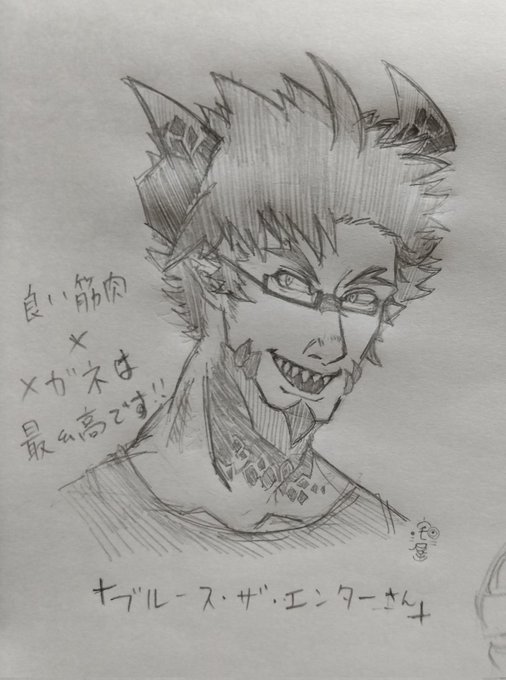 良い筋肉
×
メガネは
最高です!!
ブルース・ザ・エンターさん